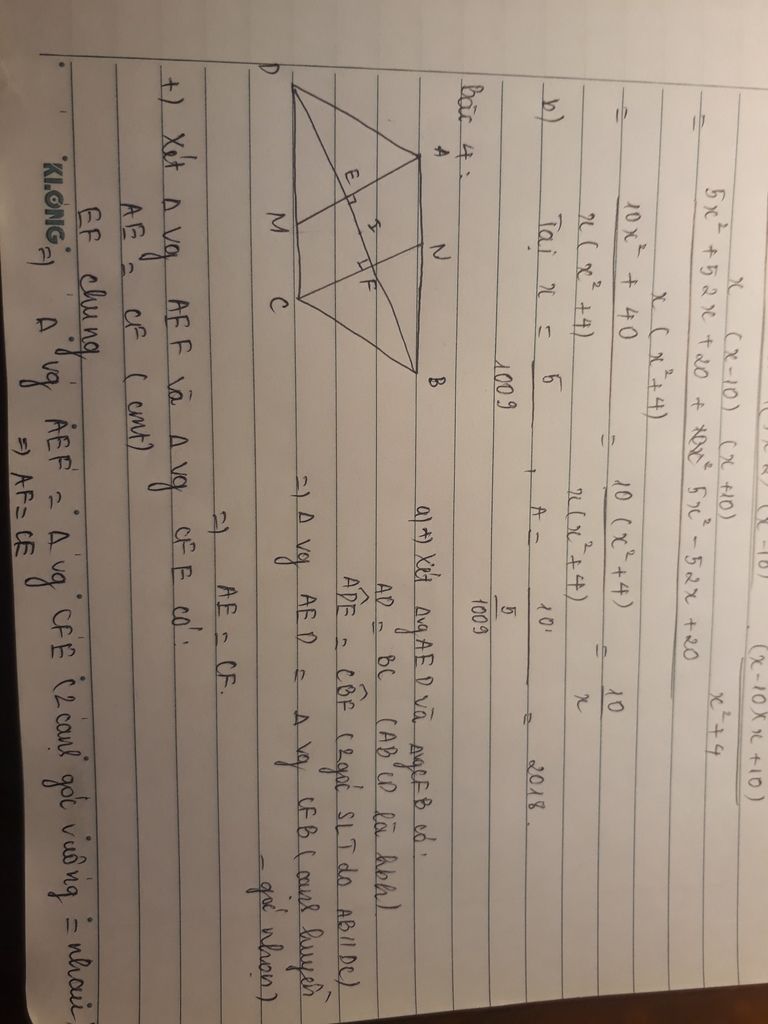 x (x-10) (x+10) x²+4
(x-10)(x+10)
= 5x² + 52x + 20 + 5x² - 52x + 20
x (x²+4)
= 10x² + 40 = 10(x²+4) = 10
x(x²+4) x(x²+4) x
b) Tại x = 5/1009, A = 10 / (5/1009) = 2018.
bài 4:
A N B
D M C
E I F
a) +) Xét Δvg AED và Δvg CFB có:
AD = BC (ABCD là hbh)
ADE = CBF (2 góc SLT do AB//DC)
=) Δ vg AED = Δ vg CFB (cạnh huyền
- góc nhọn)
=) AE = CF.
+) Xét Δ vg AEF và Δ vg CFE có:
AE = CF (cmt)
EF chung
=) Δ vg AEF = Δ vg CFE (2 cạnh góc vuông = nhau)
=) AF = CE
KLONG